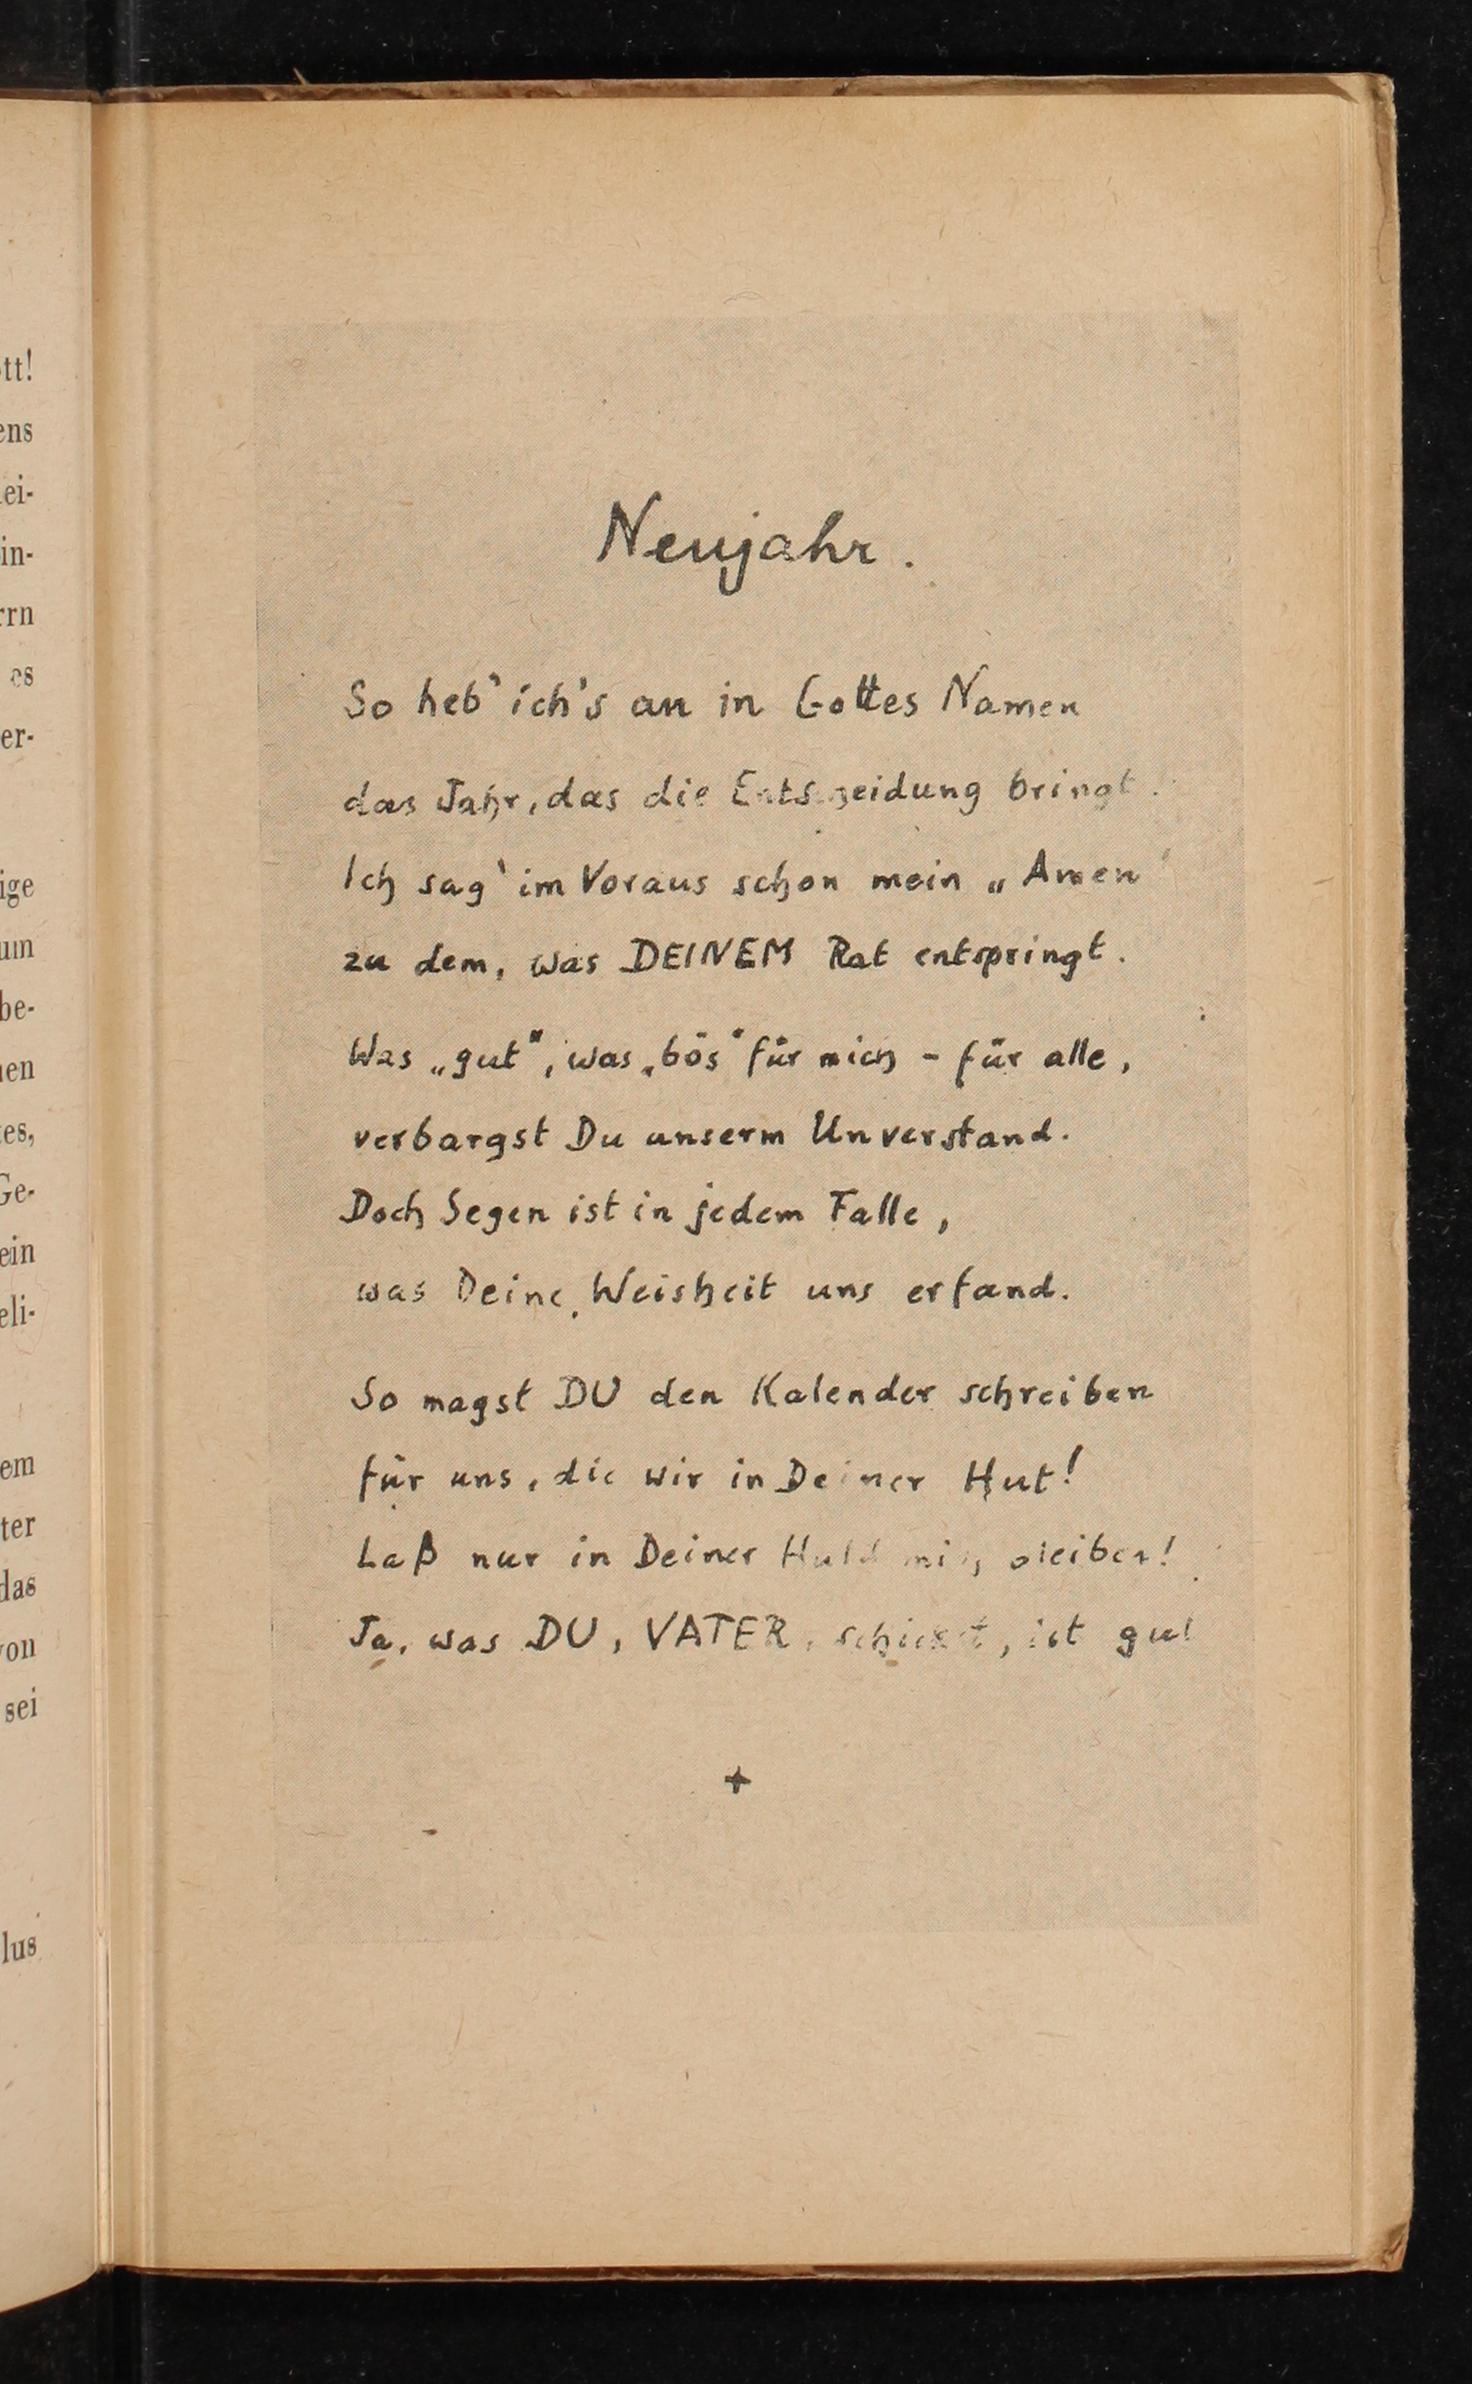 Neujahr.
So heb' ich's an in Gottes Namen
das Jahr, das die Entscheidung bringt.
Ich sag' im Voraus schon mein „Amen"
zu dem, was DEINEM Rat entspringt.
Was „gut", was „bös" für mich - für alle,
verbargst Du unserm Unverstand.
Doch Segen ist in jedem Falle,
was Deine Weisheit uns erfand.
So magst DU den Kalender schreiben
für uns, die wir in Deiner Hut!
Laß nur in Deiner Huld mich bleiben!
Ja, was DU, VATER, schickst, ist gut
+
tt!
ens
ei-
in-
rrn
es
er-
ige
um
be-
en
es,
Ge-
ein
eli-
em
ter
das
von
sei
lus